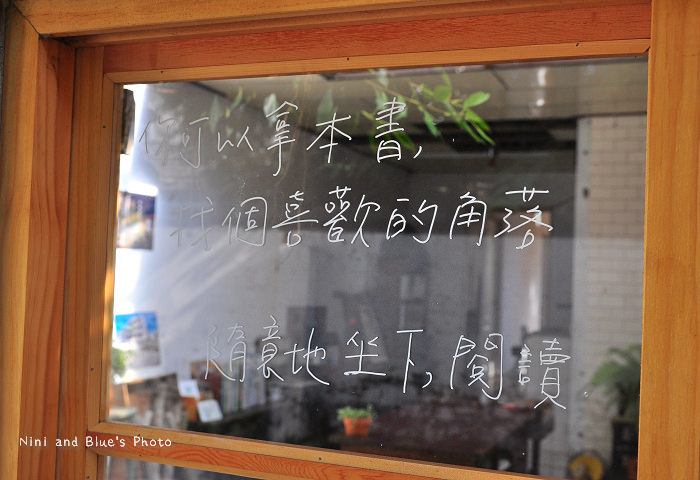 你可以拿本書,
找個喜歡的角落
隨意地坐下,閱讀
Nini and Blue's Photo